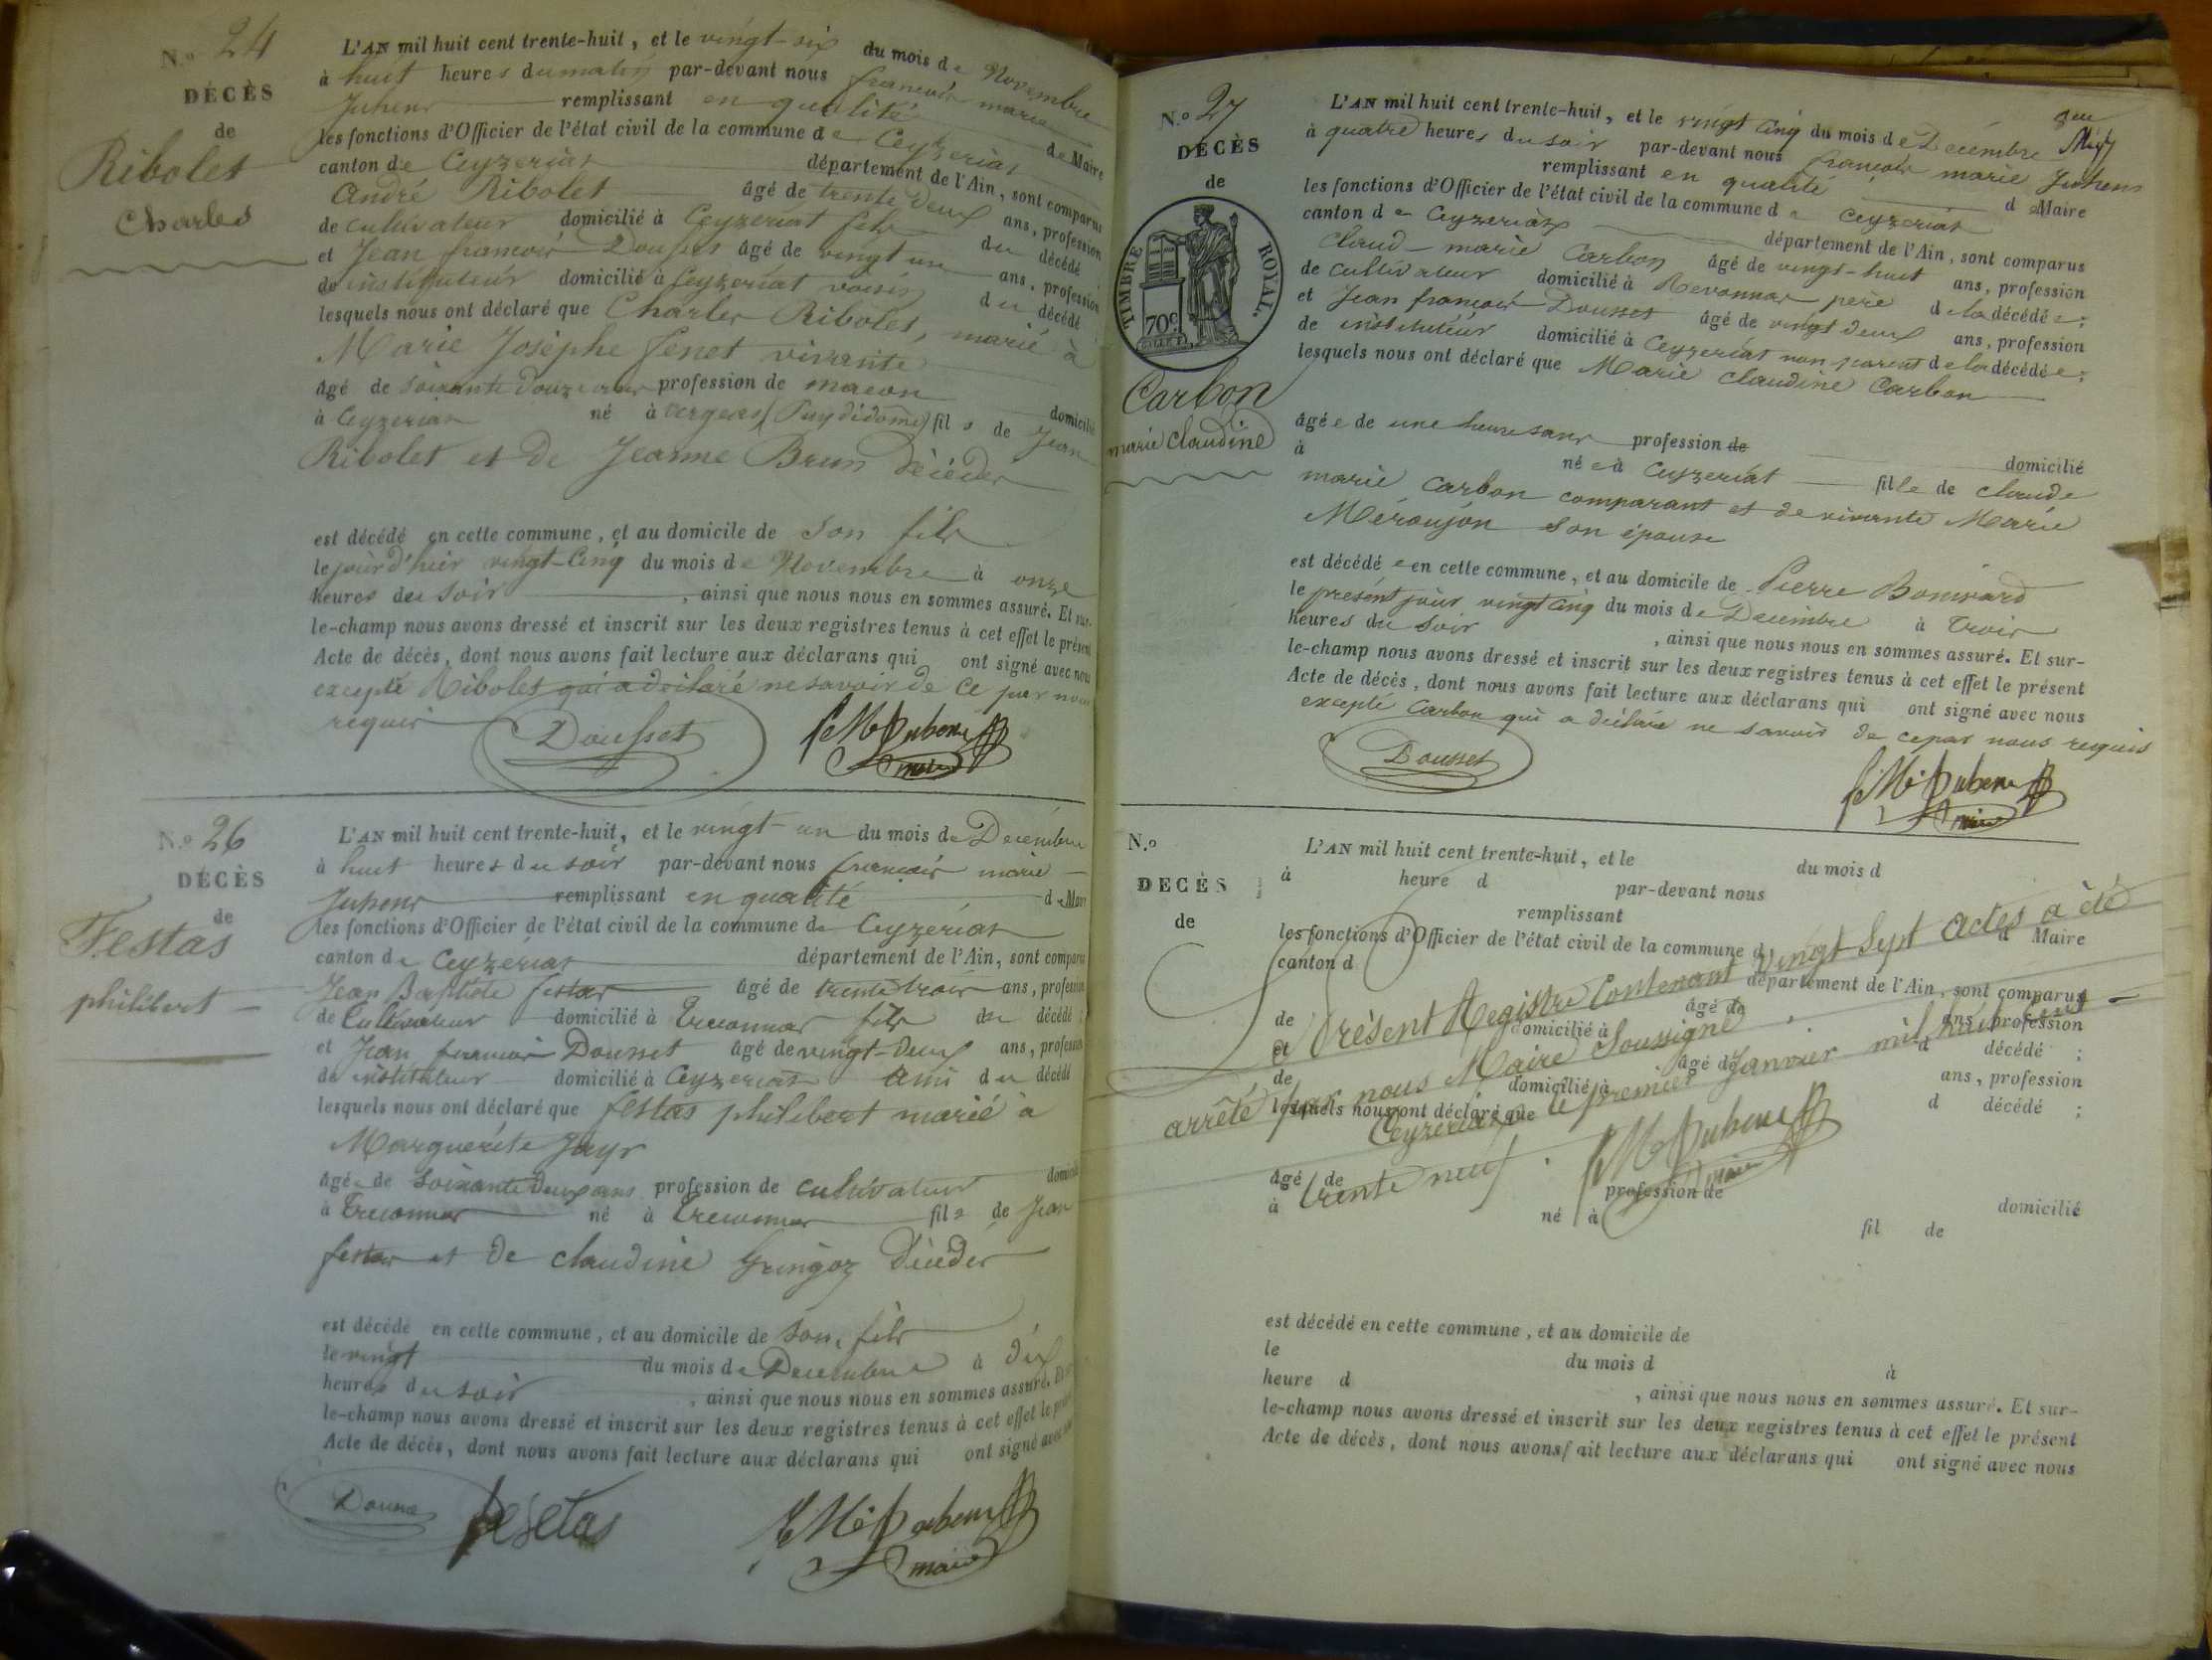 N.o 24
DÉCÈS
de
Ribolet
Charles
L'AN mil huit cent trente-huit, et le vingt-six du mois de Novembre
à huit heures du matin par-devant nous françois marie
Juhene remplissant en qualité de Maire
les fonctions d'Officier de l'état civil de la commune de Ceyzeriat
canton de Ceyzeriat département de l'Ain, sont comparus
André Ribolet âgé de trente deux ans, profession
de cultivateur domicilié à Ceyzeriat fils du décédé
et Jean francois Dousset âgé de vingt un ans, profession
de instituteur domicilié à Ceyzeriat voisin du décédé
lesquels nous ont déclaré que Charles Ribolet, marié à
Marie Josèphe Jenet vivante
âgé de soixante douze ans profession de macon domicilié
à Ceyzeriat né à (Puy didome) fils de Jean
Ribolet et de Jeanne Brun décédés
est décédé en cette commune, et au domicile de son fils
le jour d'hier vingt-cinq du mois de Novembre à onze
heures du soir, ainsi que nous nous en sommes assuré. Et sur-
le-champ nous avons dressé et inscrit sur les deux registres tenus à cet effet le présent
Acte de décès, dont nous avons fait lecture aux déclarans qui ont signé avec nous
excepté Ribolet qui a déclaré ne savoir de ce par nous
requis
Dousset
maire
N.o 26
DÉCÈS
de
Festas
philibert
L'AN mil huit cent trente-huit, et le vingt-un du mois de Decembre
à huit heures du soir par-devant nous francois marie
Juhene remplissant en qualité de Maire
les fonctions d'Officier de l'état civil de la commune de Ceyzeriat
canton de Ceyzeriat département de l'Ain, sont comparus
Jean Baptiste festas âgé de trente trois ans, profession
de Cultivateur domicilié à Treconnas fils du décédé
et Jean francois Dousset âgé de vingt-deux ans, profession
de instituteur domicilié à Ceyzeriat ami du décédé
lesquels nous ont déclaré que festas philibert marié à
Marguerite Jayr
âgé de soixante deux ans profession de cultivateur domicilié
à Treconnas né à Treconnas fils de Jean
festas et de claudine Gringoz décédés
est décédé en cette commune, et au domicile de son fils
le vingt du mois de Decembre à dix
heures du soir, ainsi que nous nous en sommes assuré. Et sur-
le-champ nous avons dressé et inscrit sur les deux registres tenus à cet effet le présent
Acte de décès, dont nous avons fait lecture aux déclarans qui ont signé avec nous
festas
maire
N.o 27
DÉCÈS
de
TIMBRE ROYAL.
70c
Carbon
marie claudine
L'AN mil huit cent trente-huit, et le vingt cinq du mois de Decembre
à quatre heures du soir par-devant nous françois marie Juhene
remplissant en qualité d Maire
les fonctions d'Officier de l'état civil de la commune de Ceyzeriat
canton de Ceyzeriat département de l'Ain, sont comparus
Claud-marie Carbon âgé de vingt-huit ans, profession
de cultivateur domicilié à Revonnas père de la décédée;
et Jean françois Dousset âgé de vingt deux ans, profession
de instituteur domicilié à Ceyzeriat non parent de la décédée;
lesquels nous ont déclaré que Marie Claudine Carbon
âgée de une heure sans profession de
à domicilié
née à Ceyzeriat fille de claude
marie Carbon comparant et de vivante Marie
son épouse
est décédée en cette commune, et au domicile de Pierre Bonivard
le présent jour vingt cinq du mois de Decembre à trois
heures du soir, ainsi que nous nous en sommes assuré. Et sur-
le-champ nous avons dressé et inscrit sur les deux registres tenus à cet effet le présent
Acte de décès, dont nous avons fait lecture aux déclarans qui ont signé avec nous
excepté Carbon qui a déclaré ne savoir de ce par nous requis
Dousset
maire
N.o
DÉCÈS
de
L'AN mil huit cent trente-huit, et le du mois d
à heure d par-devant nous
remplissant d Maire
les fonctions d'Officier de l'état civil de la commune d
canton d département de l'Ain, sont comparus
âgé de ans, profession
de domicilié à d décédé;
et âgé de ans, profession
de domicilié à d décédé;
lesquels nous ont déclaré que
âgé de profession de domicilié
à né à fil de
Le Présent Registre Contenant Vingt Sept actes a été
arrêté par nous Maire Soussigné
Ceyzeriat le premier Janvier mil huit cent
trente neuf.
maire
est décédé en cette commune, et au domicile de
le du mois d à
heure d, ainsi que nous nous en sommes assuré. Et sur-
le-champ nous avons dressé et inscrit sur les deux registres tenus à cet effet le présent
Acte de décès, dont nous avons fait lecture aux déclarans qui ont signé avec nous